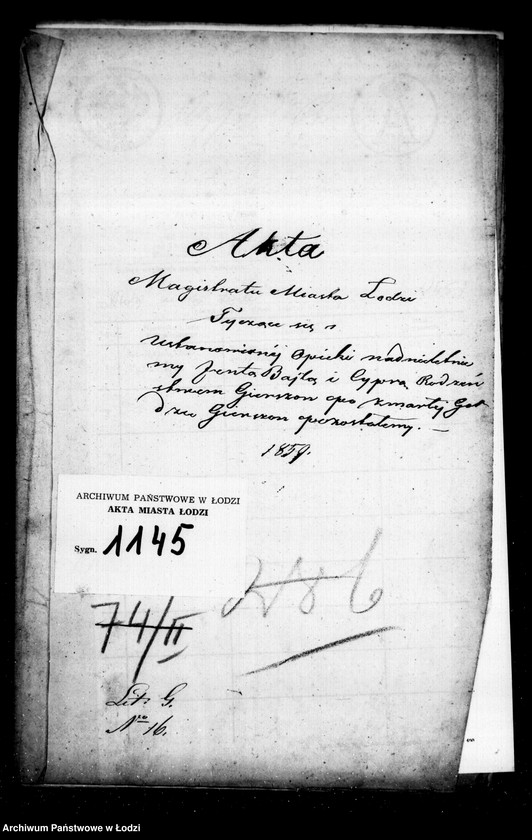 Akta
Magistratu Miasta Lodzi
Tyczące się
Ustanowionéj Opieki nadnieletnie
my Jenta Bajla i Cypra Rodzeń
stwem Gierszon opo zmarły Gol
dzie Gierszon opozostałemy. —
1859.
ARCHIWUM PAŃSTWOWE W ŁODZI
AKTA MIASTA ŁODZI
Sygn. 1145
74/II
Lit: G.
Nro 16.
Archiwum Państwowe w Łodzi